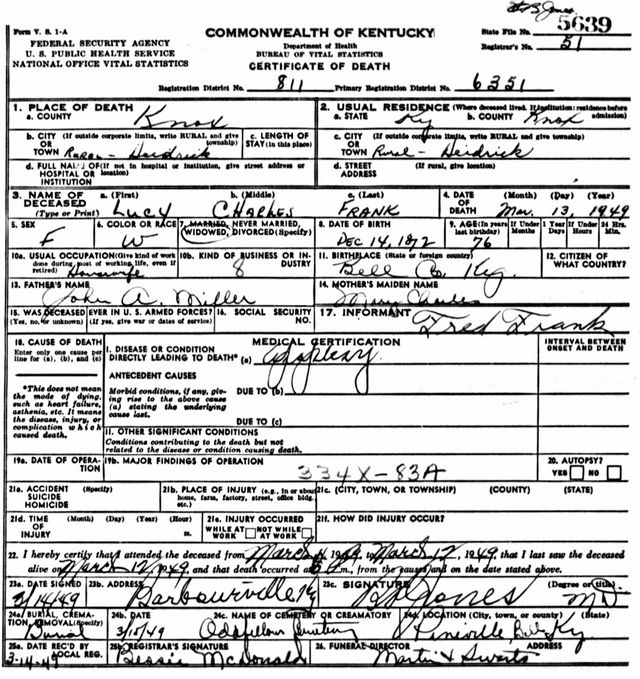 Form V. S. 1-A
FEDERAL SECURITY AGENCY
U. S. PUBLIC HEALTH SERVICE
NATIONAL OFFICE VITAL STATISTICS
COMMONWEALTH OF KENTUCKY
Department of Health
BUREAU OF VITAL STATISTICS
CERTIFICATE OF DEATH
Jones
State File No. 5639
Registrar's No. 51
Registration District No. 811 Primary Registration District No. 6351
1. PLACE OF DEATH
a. COUNTY Knox
2. USUAL RESIDENCE (Where deceased lived. If institution: residence before admission)
a. STATE Ky b. COUNTY Knox
b. CITY (If outside corporate limits, write RURAL and give township) OR TOWN Rural - Heidrick
c. LENGTH OF STAY (in this place)
c. CITY (If outside corporate limits, write RURAL and give township) OR TOWN Rural - Heidrick
d. FULL NAME OF (If not in hospital or institution, give street address or location) HOSPITAL OR INSTITUTION
d. STREET ADDRESS (If rural, give location)
3. NAME OF DECEASED (Type or Print)
a. (First) LUCY
b. (Middle) CHARLES
c. (Last) FRANK
4. DATE OF DEATH (Month) (Day) (Year) Mar. 13, 1949
5. SEX F
6. COLOR OR RACE W
7. MARRIED, NEVER MARRIED, WIDOWED, DIVORCED (Specify)
8. DATE OF BIRTH Dec 14, 1872
9. AGE (In years last birthday) 76
If Under 1 Year Months Days
If Under 24 Hrs. Hours Min.
10a. USUAL OCCUPATION (Give kind of work done during most of working life, even if retired) Housewife
10b. KIND OF BUSINESS OR INDUSTRY
11. BIRTHPLACE (State or foreign country) Bell Co. Ky.
12. CITIZEN OF WHAT COUNTRY?
13. FATHER'S NAME John A. Miller
14. MOTHER'S MAIDEN NAME Mary Charles
15. WAS DECEASED EVER IN U. S. ARMED FORCES? (Yes, no, or unknown) (If yes, give war or dates of service)
16. SOCIAL SECURITY NO.
17. INFORMANT Fred Frank
18. CAUSE OF DEATH
Enter only one cause per line for (a), (b), and (c)
*This does not mean the mode of dying, such as heart failure, asthenia, etc. It means the disease, injury, or complication which caused death.
MEDICAL CERTIFICATION
INTERVAL BETWEEN ONSET AND DEATH
I. DISEASE OR CONDITION DIRECTLY LEADING TO DEATH* (a) Apoplexy
ANTECEDENT CAUSES
Morbid conditions, if any, giving rise to the above cause (a) stating the underlying cause last.
DUE TO (b)
DUE TO (c)
11. OTHER SIGNIFICANT CONDITIONS
Conditions contributing to the death but not related to the disease or condition causing death.
19a. DATE OF OPERATION
19b. MAJOR FINDINGS OF OPERATION
334X-83A
20. AUTOPSY? YES NO
21a. ACCIDENT SUICIDE HOMICIDE (Specify)
21b. PLACE OF INJURY (e.g., in or about home, farm, factory, street, office bldg. etc.)
21c. (CITY, TOWN, OR TOWNSHIP) (COUNTY) (STATE)
21d. TIME OF INJURY (Month) (Day) (Year) (Hour) m.
21e. INJURY OCCURRED WHILE AT WORK NOT WHILE AT WORK
21f. HOW DID INJURY OCCUR?
22. I hereby certify that I attended the deceased from March 1949, to March 12, 1949, that I last saw the deceased
alive on March 12, 1949, and that death occurred at m., from the causes and on the date stated above.
23a. DATE SIGNED 3/14/49
23b. ADDRESS Barbourville Ky
23c. SIGNATURE Jones (Degree or title) MD
24a. BURIAL, CREMATION, REMOVAL (Specify) Burial
24b. DATE 3/15/49
24c. NAME OF CEMETERY OR CREMATORY Oddfellow Cemetery
24d. LOCATION (City, town, or county) (State) Pineville Bell Ky
25a. DATE REC'D BY LOCAL REG. 3-14-49
25b. REGISTRAR'S SIGNATURE Bessie McDonald
26. FUNERAL DIRECTOR ADDRESS Martin & Swarts